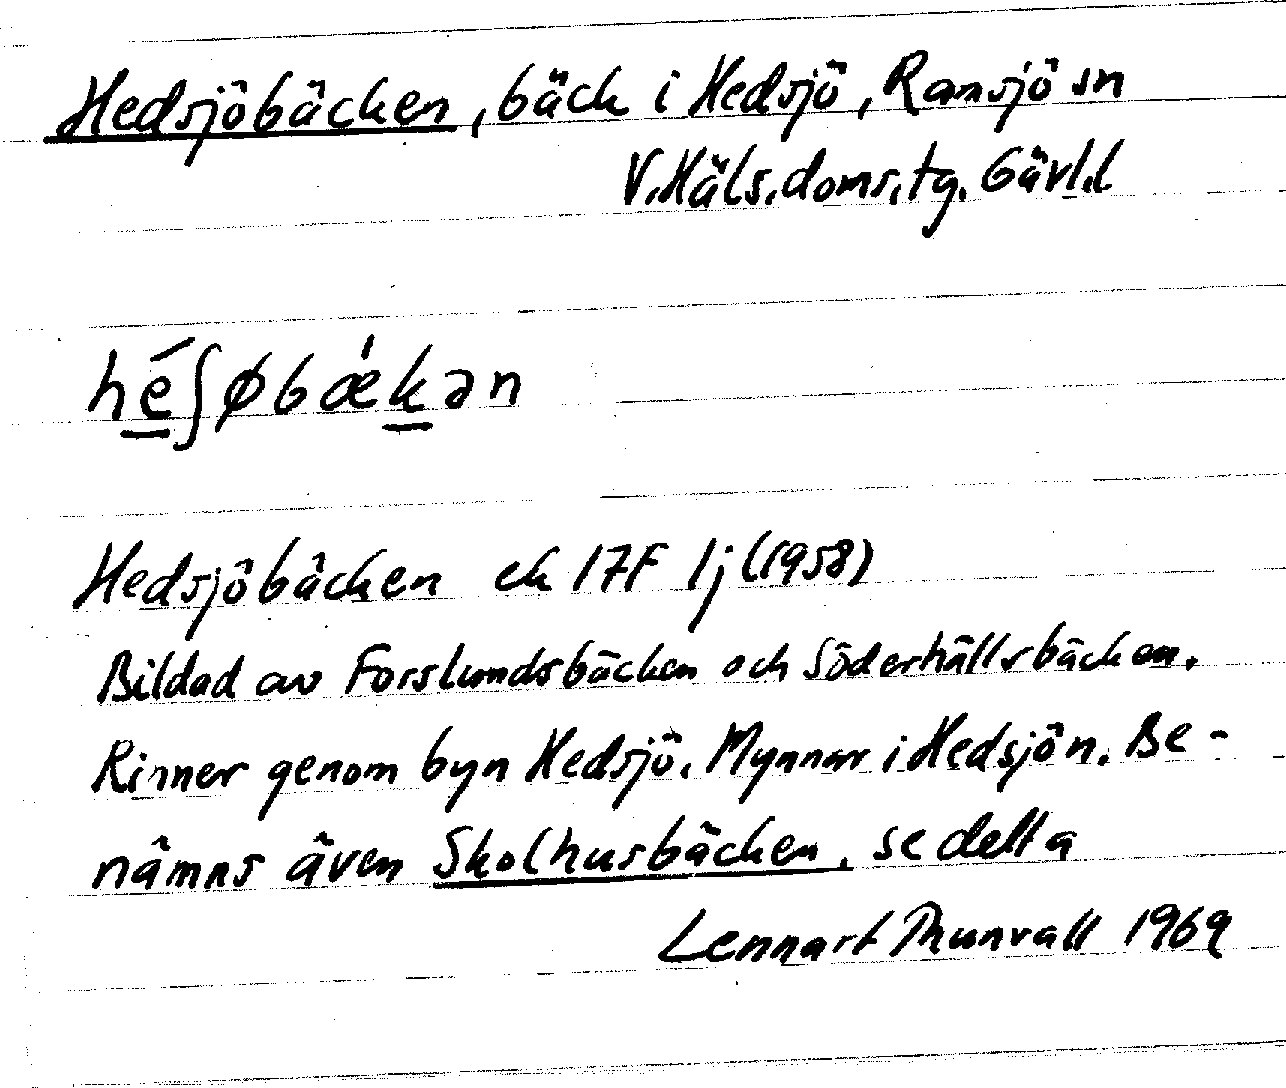 Hedsjöbäcken, bäck i Hedsjö, Ramsjö sn
V.Häls.doms.tg. Gävl.l
hé̱ʃøbǽḵən
Hedsjöbäcken ek 17F 1j (1958)
Bildad av Forslundsbäcken och Söderhällsbäcken.
Rinner genom byn Hedsjö. Mynnar i Hedsjön. Be-
nämns även Skolhusbäcken, se detta
Lennart Thunvall 1969